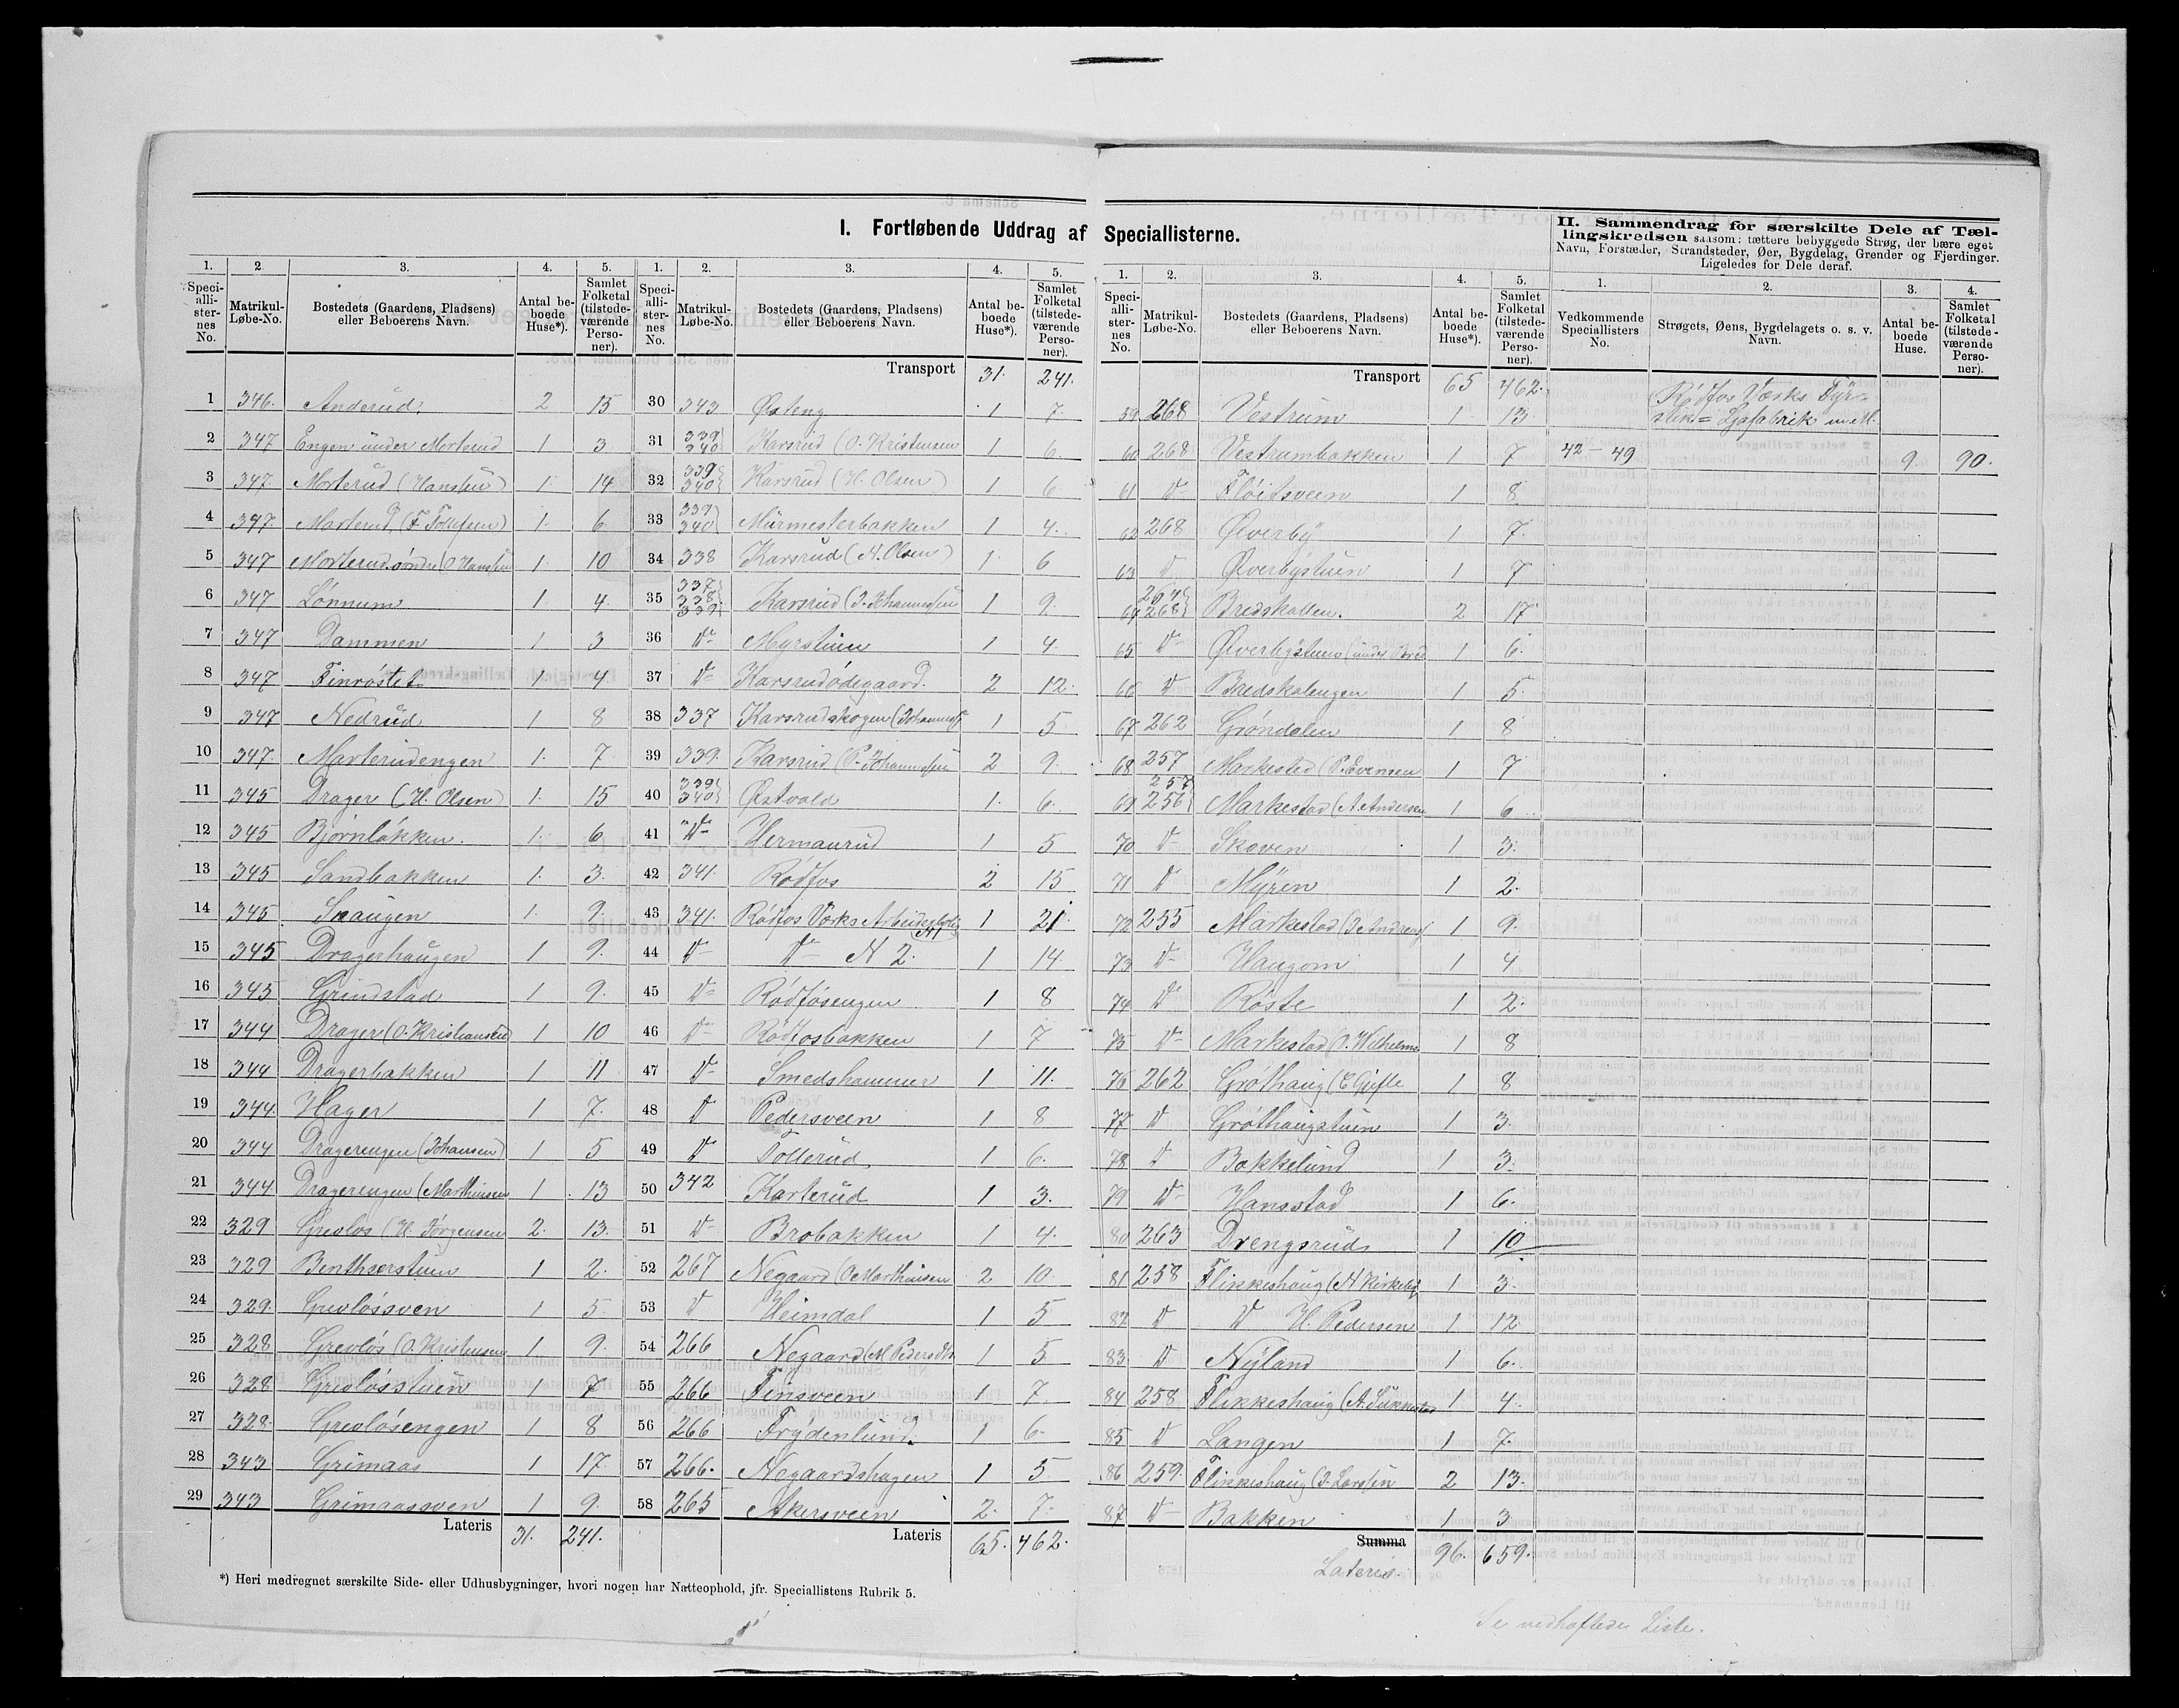 I. Fortløbende Uddrag af Speciallisterne.
1. 2. 3. 4. 5.
Speciallisternes No. Matrikul-Løbe-No. Bostedets (Gaardens, Pladsens) eller Beboerens Navn. Antal beboede Huse*). Samlet Folketal (tilstedeværende Personer).
1 346. Anderud 2 15
2 347 Engen under Morterud 1 3
3 347 Morterud (Hansen) 1 14
4 347 Morterud (F. Tolufsen) 1. 6
5 347 Morterud søndre (O Hansen 1. 10
6 347 Lønnum 1. 4.
7 347 Dammen 1 3
8 347 Finrøstet 1. 4
9 347 Nedrud 1 8
10 347. Morterudengen 1. 7
11 345 Drager (H. Olsen) 1. 15
12 345 Bjørnløkken. 1. 6
13 345 Sandbakken 1. 3.
14 345 Snaugen 1. 9.
15 345 Dragerhaugen 1 9.
16 345 Grindstad 1 9.
17 344 Drager (O. Kristiansen) 1 10
18 344 Dragerbakken 1 11
19 344. Hager 1 7.
20 344 Dragerengen (Johansen) 1 5
21 344 Dragerengen (Marthinsen 1 13
22 329 Grevløs (H. Jørgensen 2. 13.
23 329 Benthserstuen 1 2.
24 329. Grevløssven 1 5.
25 328 Grevløs (O. Kristensen 1 9.
26 328 Grevløsstuen 1 7
27 328. Grevløsengen 1 8
28 343 Grimaas 1 17.
29 343 Grimaassven 1 9.
Lateris 31. 241.
1. 2. 3. 4. 5.
Speciallisternes No. Matrikul-Løbe-No. Bostedets (Gaardens, Pladsens) eller Beboerens Navn. Antal beboede Huse*). Samlet Folketal (tilstedeværende Personer).
Transport 31. 241.
30 343 Østeng 1 7.
31 339 340 Karsrud (O. Kristensen 1 6.
32 339 340 Karsrud (H. Olsen) 1 6
33 339 340 Mürmesterbakken 1 4.
34 338 Karsrud (N. Olsen) 1. 6
35 337 338 339 Karsrud (J. Johannesen 1 9.
36 D- Myrstuen 1 4.
37 D- Karsrudødegaard. 2 12.
38 337 Karsrudskogen (Johannes 1 5
39 339. Karsrud (P. Johannesen 2 9.
40 339 340 Østvold 1. 6.
41 D- Hermanrud 1 5
42 341. Rødfos 2 15
43 341. Rødfos Værks Arbeiderbolig N1 1 21.
44 D- D- N 2. 1 14
45 D- Rødfosengen 1 8
46 D- Rødfosbakken 1 7
47 D- Smedshammer 1 11.
48 D Pedersveen 1 8
49 D Tollerud 1 6.
50 342 Karterud 1 3.
51 D- Brobakken 1 4.
52 267 Negaard (O Marthinsen 2 10.
53 D Heimdal 1 5
54 266 Negaard (M Peders 1 5
55 266 Finsveen 1 7.
56 266 Frydenlund. 1 6.
57 266. Negaardshagen 1 5
58 265 Akersveen 2. 7.
Lateris 65. 462.
1. 2. 3. 4. 5.
Speciallisternes No. Matrikul-Løbe-No. Bostedets (Gaardens, Pladsens) eller Beboerens Navn. Antal beboede Huse*). Samlet Folketal (tilstedeværende Personer).
Transport 65 462.
59 268 Vestrum 1 13.
60 268 Vestrumbakken 1 7
61 D- Fløitsveen 1 8
62 268 Øverby 1 7.
63 D Øverbystuen 1 7
64 264 268 Bredskallen. 2 17
65 D- Øverbystuen (under Bred 1 6.
66 D Bredskalengen 1 5.
67 262 Grøndalen 1 8
68 257 Markestad (P. Evensen 1 7
69 257 256 Markestad (A. Andersen 1 6
70 D- Skoven 1 3.
71 D Myren 1 2.
72 255 Markestad (J Andreas 1 9.
73 D- Haugom 1 4
74 D Røste 1 2.
75 D- Markestad (O. Wilhelms 1 8
76 262 Grøthaug (E Gufle 1 8
77 D Grøthaugstuen 1 3.
78 D Bakkelund 1 3.
79 D- Hansstad 1 6.
80 263 Drengsrud 1 10
81 258 Flikkeshaug (N Kirkeby 1 3.
82 D D H. Pedersen 1 12.
83 D Nyland 1 6.
84 258 Flikkeshaug (A. Sukkestad 1 4.
85 D Langen 1 7.
86 259. Flikkeshaug (J. Larsen 2 13.
87 D- Bakken 1 3
Summa
Lateris. 96. 659.
II. Sammendrag for særskilte Dele af Tællingskredsen saasom: tættere bebyggede Strøg, der bære eget Navn, Forstæder, Strandsteder, Øer, Bygdelag, Grender og Fjerdinger. Ligeledes for Dele deraf.
1. 2. 3. 4.
Vedkommende Speciallisters No. Strøgets, Øens, Bygdelagets o. s. v. Navn. Antal beboede Huse. Samlet Folketal (tilstedeværende Personer).
Rødfos Værks Fyr-
stik= Ljafabrik m. M.
42 - 49 9. 90.
*) Heri medregnet særskilte Side- eller Udhusbygninger, hvori nogen har Natteophold, jfr. Speciallistens Rubrik 5.
Se vedhæftede Liste.